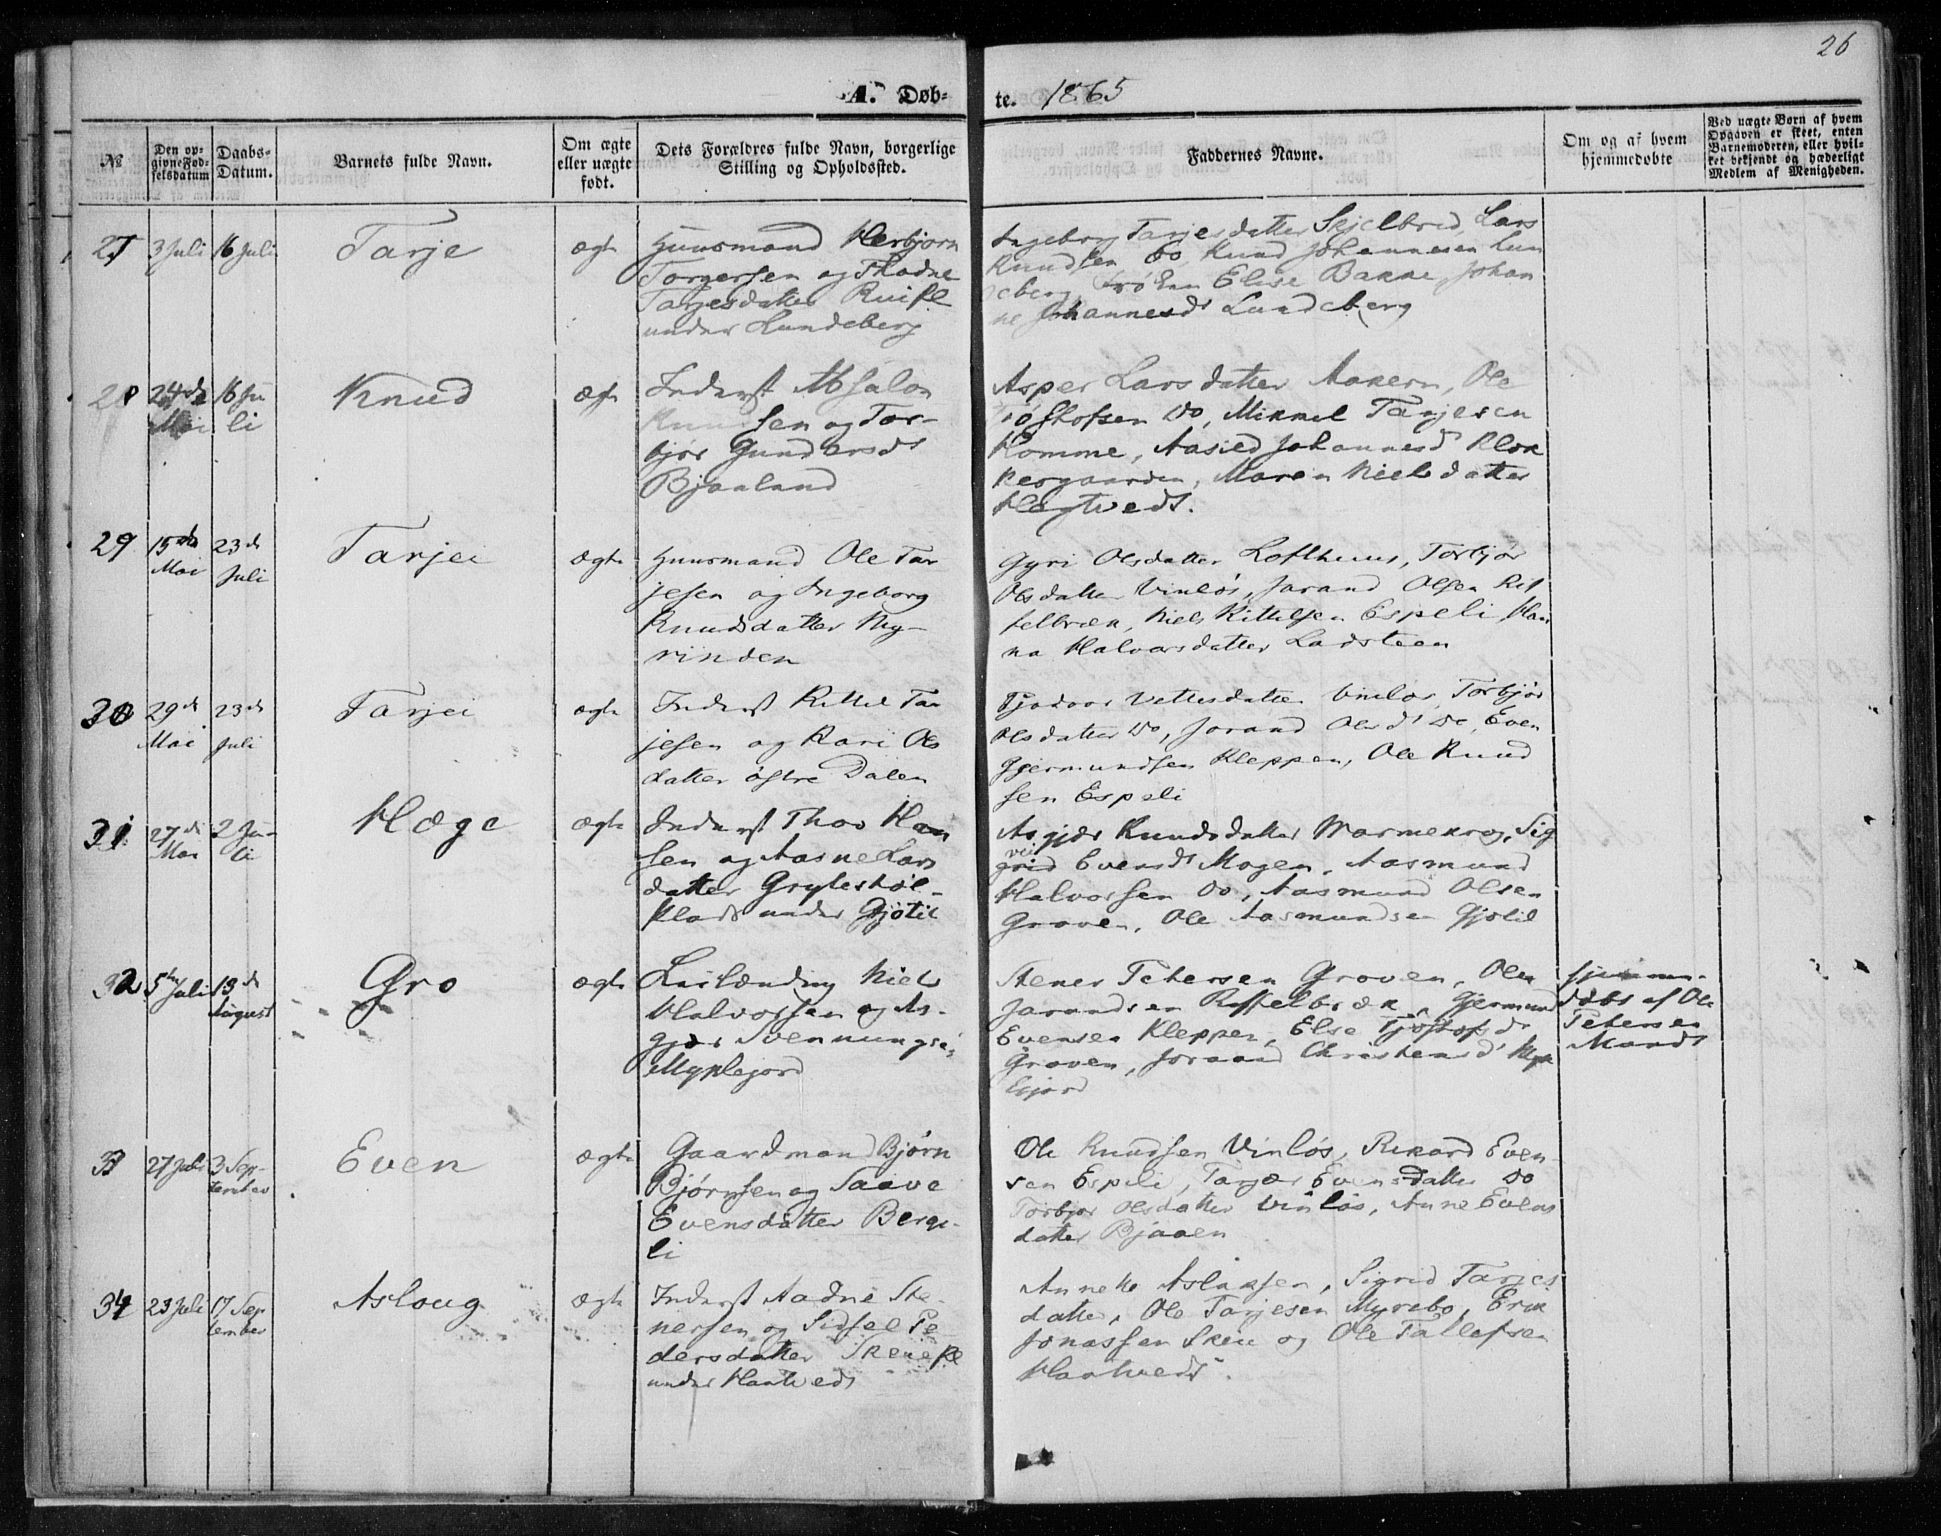 26
A. Døb-
te. 1865
№
Den op-
givne Fød-
selsdatum
Daabs-
Datum.
Barnets fulde Navn.
Om ægte
eller uægte
født.
Dets Forældres fulde Navn, borgerlige
Stilling og Opholdssted.
Faddernes Navne.
Om og af hvem
hjemmedøbte
Ved uægte Børn af hvem
Opgaven er skeet, enten
Barnemoderen, eller hvil-
ket bekjendt og hæderligt
Medlem af Menigheden.
27 3 Juli 16 Juli Tarje ægte
Huusmand Herbjørn
Torgersen og Thadne
Tarjesdatter
under Lundeberg
Ingeborg Tarjesdatter Skjelbred, Lars
Knudsen Do, Knud Johannesen Lun
deberg, Frøken Elise Bakke, Johan
ne Johannesd Lundeberg
28 24de Mai 16 Ju
li
Knud ægte
Inderst Absalon
Knudsen og Tor-
bjør Gundersd
Bjaaland
Asper Larsdatter Aakern, Ole
Tjøstofsen Do, Mikkel Tarjesen
Komme, Aasied Johannesd Klok
kergaarden, Maren Nielsdatter
Hegtvedt.
29 15de
Mai
23d
Juli
Tarjei ægte
Huusmand Ole Tar
jesen og Ingeborg
Knudsdatter My-
rinden
Gyri Olsdatter Lofthuus, Torbjør
Olsdatter Vinløs, Jorand Olsen Rof
felbræk, Niels Kittelsen Espeli, Han
na Halvorsdatter Ladsteen
30 29d
Mai
23d
Juli
Tarjei ægte
Inderst Kittel Tar
jesen og Kari Ols
datter østre Dalen
Tjodvor Vettesdatter Vinløs, Torbjør
Olsdatter Do, Jorand Olsd Do, Even
Gjermundsen Kleppen, Ole Knud
sen Espeli
31 27de
Mai
2 Ju-
li
Hæge ægte
Inderst Thov Han
sen og Aasne Lars
datter Gryteshøl-
Plads under Gjøtil
Asgjær Knudsdatter Warmekrog, Sig
vei
grid Evensd Mogen, Aasmund
Halvorsen Do, Aasmund Olsen
Groven, Ole Aasmundsen Gjøtil
32 5te Juli 13d
August
Gro ægte
Leilænding Niels
Halvorsen og As-
gjær Svennungs-
Myklejord
Stener Petersen Groven, Ole
Jorundsen Roffelbræk, Gjermund
Evensen Kleppen, Else Tjøstofsd
Groven, Joraand Christensd Myk
lejord
hjemme-
døbt af Ole
Petersen
Mandt
33 27 Juli 3 Sep-
tember
Even ægte
Gaardmand Bjørn
Bjørnsen og Saave
Evensdatter Berge-
li
Ole Knudsen Vinløs, Rikard Even
sen Espeli, Tarjær Evensdatter Do
Torbjør Olsdatter Vinløs, Anne Evens
datter Bjaaen
34 23 Juli 17 Sep-
tember
Asloug ægte
Inderst Aadne Ste-
nersen og Sidsel Pe
dersdatter Skeie
under Haatvedt
Anne Aslaksen, Sigrid Tarjes
datter, Ole Tarjesen Myrebø, Erik
Jonassen Skeie og Ole Tallefsen
Haatvedt.